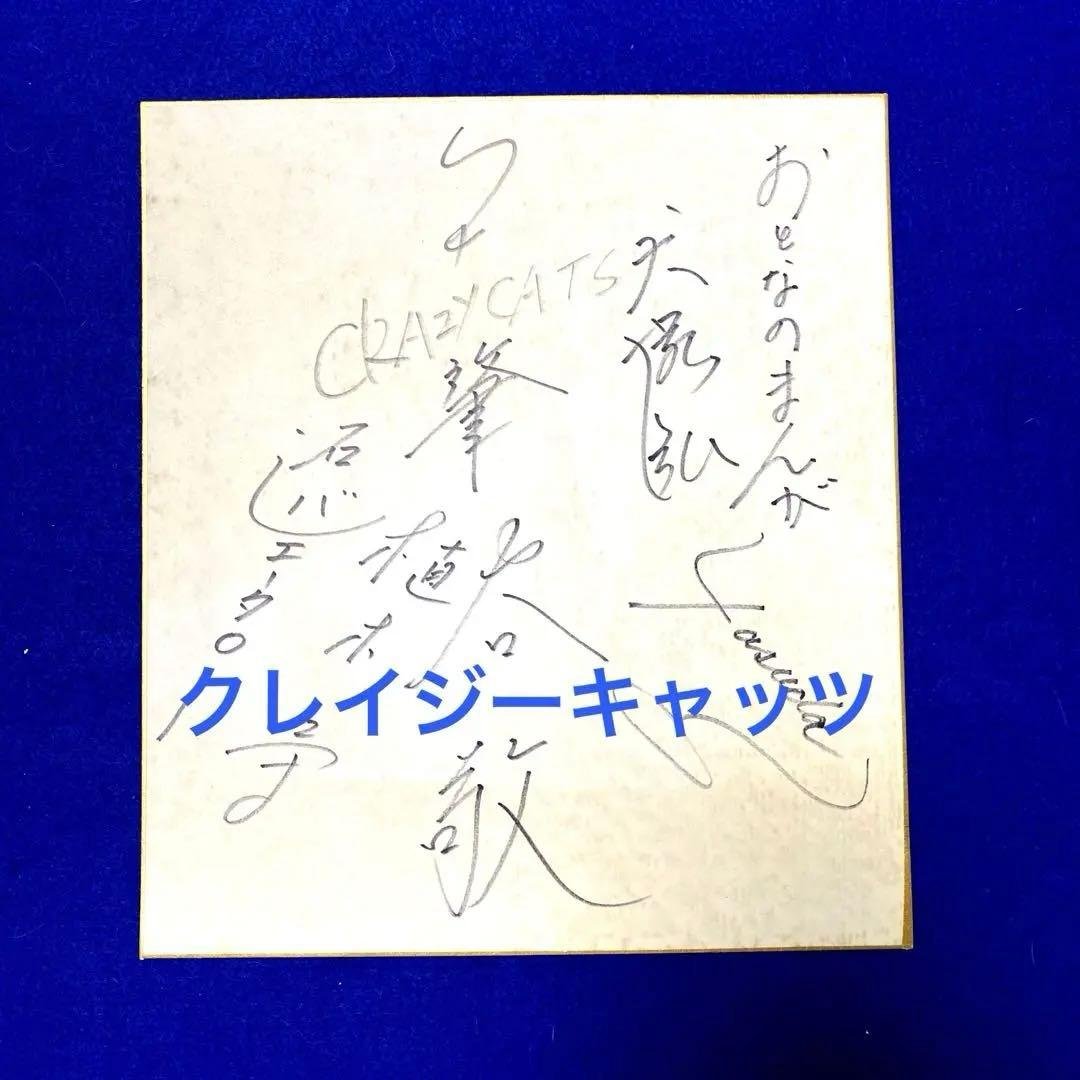 おとなのまんが
Yasuda
犬塚弘
CRAZY CATS
ハナ肇
谷
啓
植木
等
石バシ
エータロー
クレイジーキャッツ